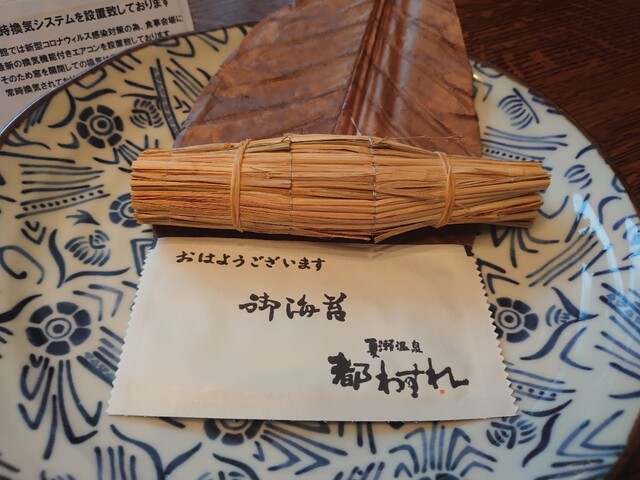 時換気システムを設置致しております
館では新型コロナウィルス感染対策の為、食事会場に
最新の換気機能付きエアコンを設置しております
そのため窓を開閉しての換気は
常時換気されてお
おはようございます
御海苔
夏瀬温泉
都わすれ